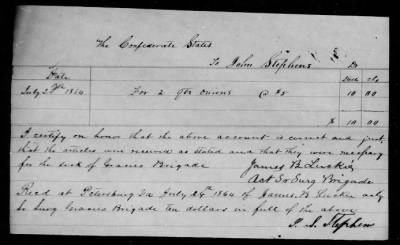 The Confederate States
To John Stephens Dr
Date Dolls cts
July 24th 1864 For 2 Qts onions @ $5 10 00
$ 10 00
I certify on honor that the above account is correct and just,
that the articles were received as stated and that they were necessary
for the sick of Gracies Brigade James B. Luckie
Act Sr Surg Brigade
Recd at Petersburg Va July 24th 1864 of James B Luckie actg
Sr Surg Gracies Brigade ten dollars in full of the above
Stephens